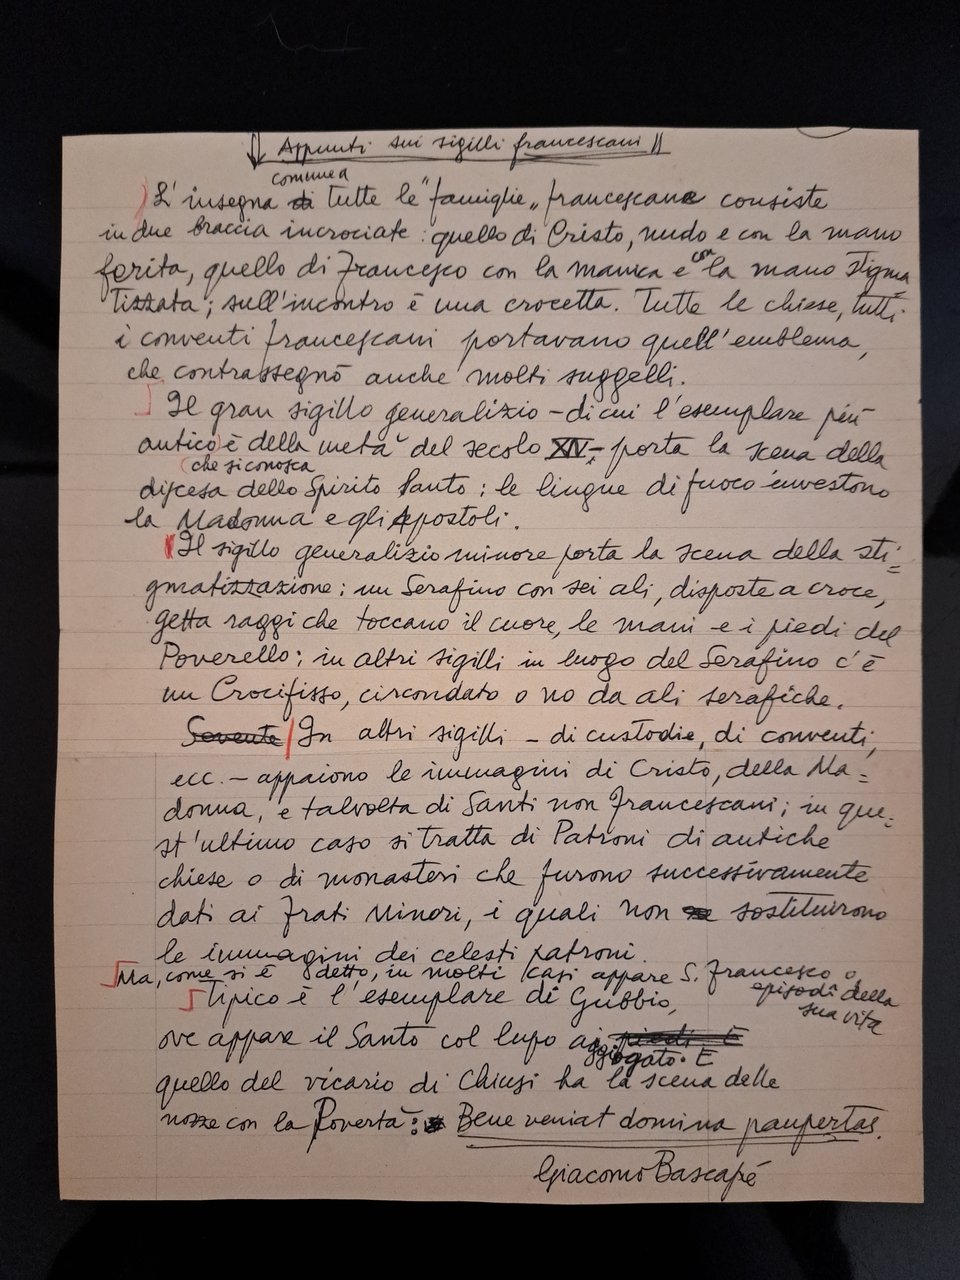 Appunti sui sigilli francescani
comune a
L'insegna di tutte le "famiglie„ francescane consiste
in due braccia incrociate: quello di Cristo, nudo e con la mano
ferita, quello di Francesco con la manica e con la mano stigma
tizzata; sull'incontro è una crocetta. Tutte le chiese, tutti
i conventi francescani portavano quell'emblema,
che contrassegnò anche molti suggelli.
Il gran sigillo generalizio – di cui l'esemplare più
antico è della metà del secolo XIV – porta la scena della
(che si conosca
discesa dello Spirito Santo: le lingue di fuoco investono
la Madonna e gli Apostoli.
Il sigillo generalizio minore porta la scena della sti=
gmatizzazione: un Serafino con sei ali, disposte a croce,
getta raggi che toccano il cuore, le mani e i piedi del
Poverello; in altri sigilli in luogo del Serafino c'è
un Crocifisso, circondato o no da ali serafiche.
Sovente In altri sigilli – di custodie, di conventi,
ecc. – appaiono le immagini di Cristo, della Ma=
donna, e talvolta di Santi non francescani; in que=
st'ultimo caso si tratta di Patroni di antiche
chiese o di monasteri che furono successivamente
dati ai Frati Minori, i quali non sostituirono
le immagini dei celesti patroni.
Ma, come si è detto, in molti casi appare S. Francesco o
episodi della
sua vita
Tipico è l'esemplare di Gubbio,
ove appare il Santo col lupo ai piedi È
aggiogato. E
quello del vicario di Chiusi ha la scena delle
nozze con la Povertà: Bene veniat domina paupertas.
Giacomo Bascapé